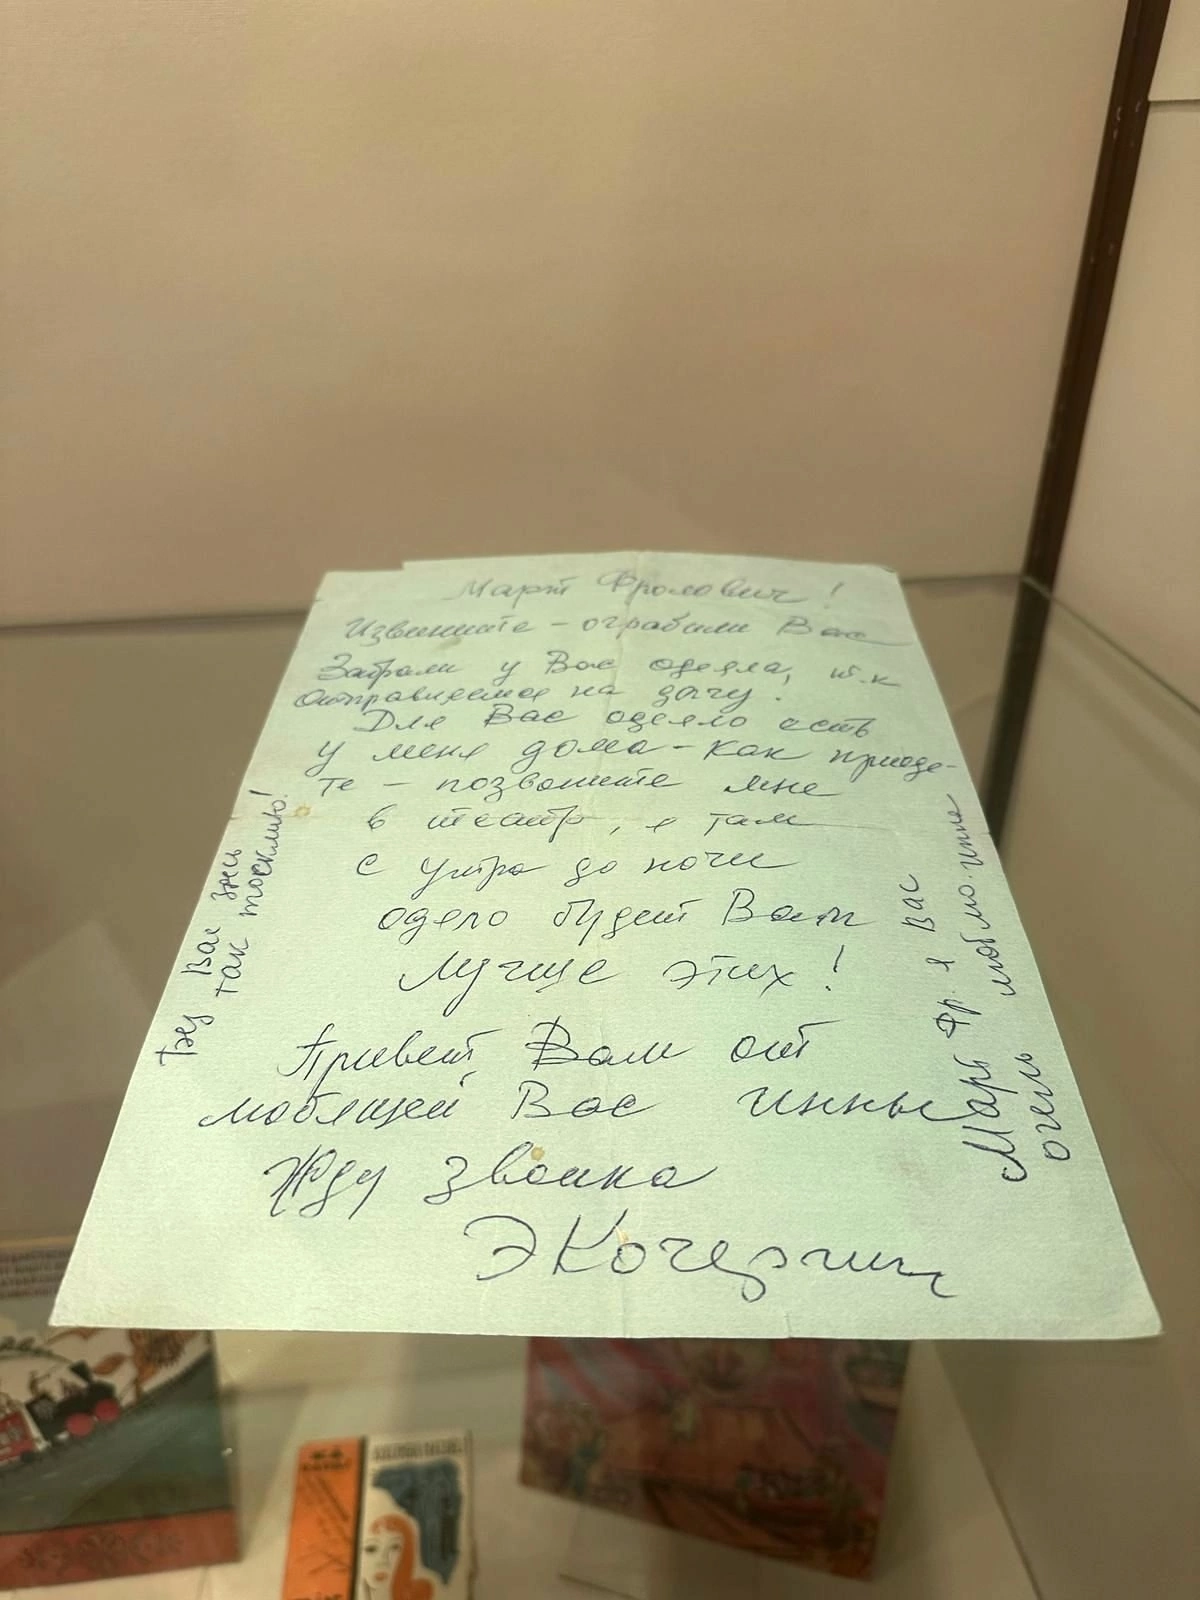 Март Фролович!
Извините - ограбили Вас
Забрали у Вас одеяла, т.к
отправляемся на дачу.
Для Вас одеяло есть
у меня дома - как приеде-
те - позвоните мне
в театр, я там
с утра до ночи
одело будет Вам
лучше этих!
Привет Вам от
любящей Вас Инны
Жду звонка
Э Кочергин
Без Вас здесь
так тоскливо!
Март Фр. я Вас
очень люблю. Инна